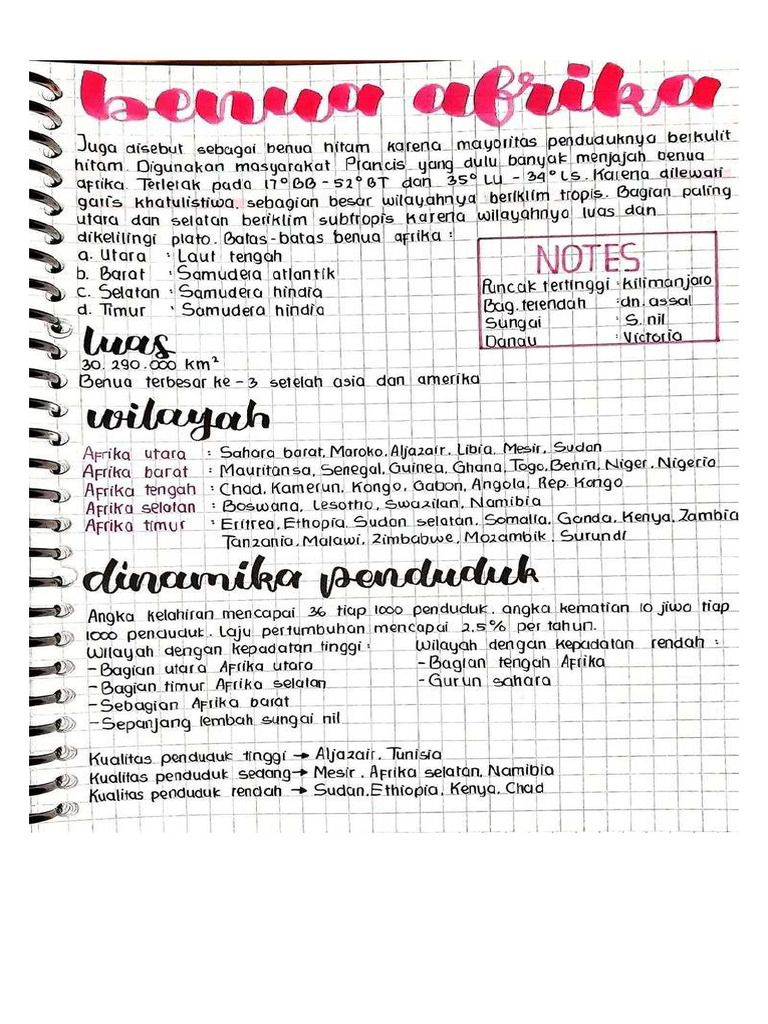 benua afrika
Juga disebut sebagai benua hitam karena mayoritas penduduknya berkulit
hitam. Digunakan masyarakat Prancis yang dulu banyak menjajah benua
afrika. Terletak pada 17°BB - 52°BT dan 35° LU - 34° LS. Karena dilewati
garis khatulistiwa, sebagian besar wilayahnya beriklim tropis. Bagian paling
utara dan selatan beriklim subtropis karena wilayahnya luas dan
dikelilingi plato. Batas-batas benua afrika :
a. Utara : Laut tengah
b. Barat : Samudera atlantik
c. Selatan : Samudera hindia
d. Timur : Samudera hindia
NOTES
Puncak tertinggi : kilimanjaro
Bag. terendah : dn. assal
Sungai : S. nil
Danau : Victoria
luas
30.290.000 km²
Benua terbesar ke-3 setelah asia dan amerika
wilayah
Afrika utara : Sahara barat, Maroko, Aljazair, Libia, Mesir, Sudan
Afrika barat : Mauritansa, Senegal, Guinea, Ghana, Togo, Benin, Niger, Nigeria
Afrika tengah : Chad, Kamerun, Kongo, Gabon, Angola, Rep. Kongo
Afrika selatan : Boswana, Lesotho, Swazilan, Namibia
Afrika timur : Eritrea, Ethopia, Sudan selatan, Somalia, Gonda, Kenya, Zambia
Tanzania, Malawi, Zimbabwe, Mozambik, Surundi
dinamika penduduk
Angka kelahiran mencapai 36 tiap 1000 penduduk. angka kematian 10 jiwa tiap
1000 penduduk. Laju pertumbuhan mencapai 2.5% per tahun.
Wilayah dengan kepadatan tinggi :
- Bagian utara Afrika utara
- Bagian timur Afrika selatan
- Sebagian Afrika barat
- Sepanjang lembah sungai nil
Wilayah dengan kepadatan rendah :
- Bagian tengah Afrika
- Gurun sahara
Kualitas penduduk tinggi → Aljazair, Tunisia
Kualitas penduduk sedang → Mesir, Afrika selatan, Namibia
Kualitas penduduk rendah → Sudan, Ethiopia, Kenya, Chad